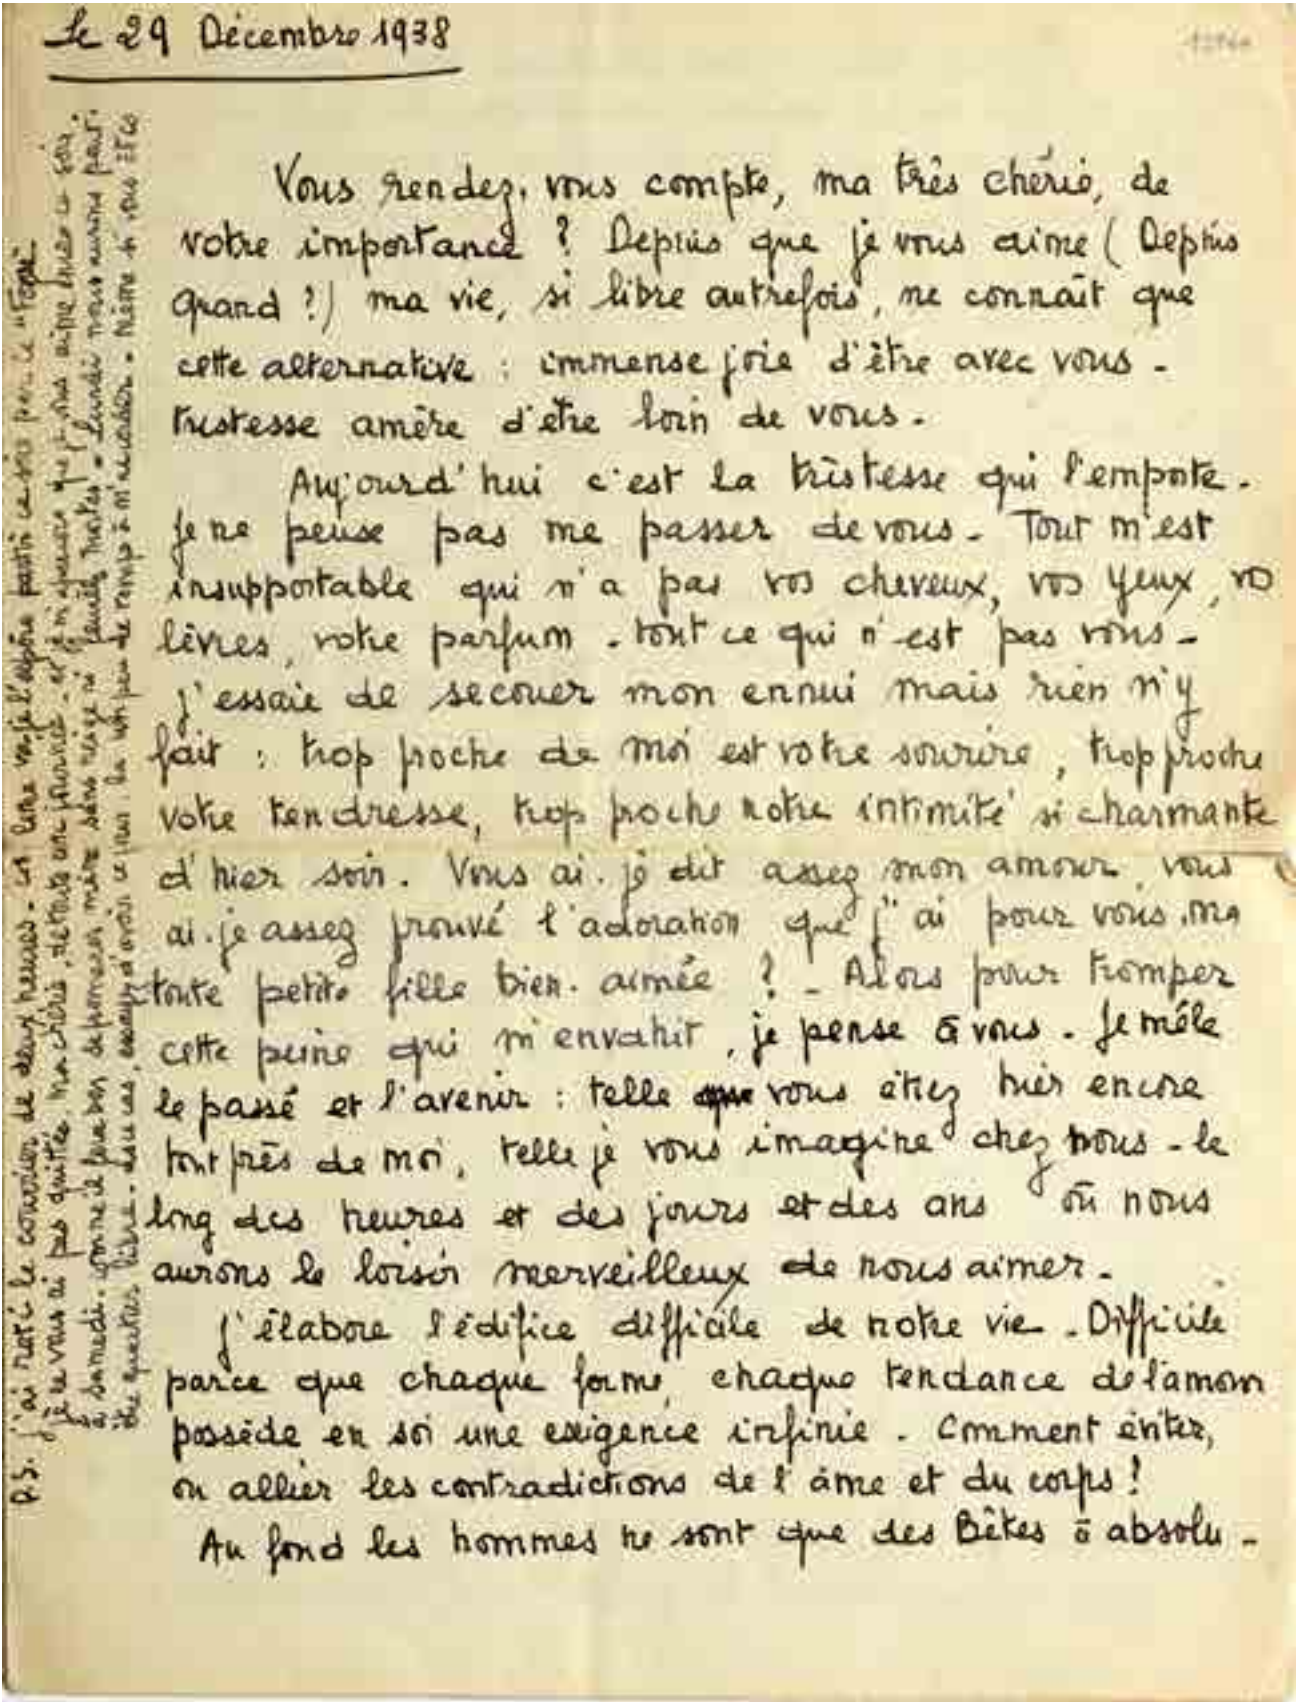 Le 29 Décembre 1938
Vous rendez-vous compte, ma très chérie, de
votre importance ? Depuis que je vous aime ( Depuis
quand ?) ma vie, si libre autrefois, ne connaît que
cette alternative : immense joie d'être avec vous -
tristesse amère d'être loin de vous.
Aujourd'hui c'est la tristesse qui l'emporte.
Je ne peux pas me passer de vous. Tout m'est
insupportable qui n'a pas vos cheveux, vos yeux, vos
lèvres, votre parfum - tout ce qui n'est pas vous -
J'essaie de secouer mon ennui mais rien n'y
fait : trop proche de moi est votre sourire, trop proche
votre tendresse, trop proche notre intimité si charmante
d'hier soir. Vous ai-je dit assez mon amour, vous
ai-je assez prouvé l'adoration que j'ai pour vous, ma
toute petite fille bien-aimée ? - Alors pour tromper
cette peine qui m'envahit, je pense à vous. Je mêle
le passé et l'avenir : telle vous étiez hier encore
tout près de moi, telle je vous imagine chez nous - le
long des heures et des jours et des ans où nous
aurons le loisir merveilleux de nous aimer.
J'élabore l'édifice difficile de notre vie. Difficile
parce que chaque forme, chaque tendance de l'amour
possède en soi une exigence infinie. Comment éviter,
ou allier les contradictions de l'âme et du corps !
Au fond les hommes ne sont que des Bêtes à absolu -
P.S. J'ai raté le courrier de deux heures. Cette lettre
je ne vous ai pas quittée, ma chérie, de toute une journée - et
à samedi. comme il sera bon de penser même sans neige ni
être quittes libre. un peu de temps à m'accorder - Même si vous êtes